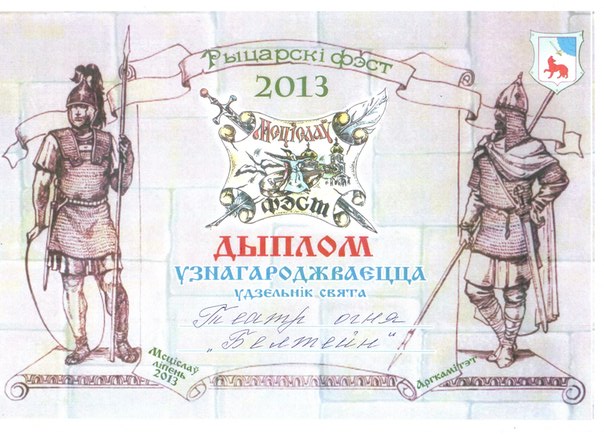 Рыцарскі фэст
2013
Мсціслаў
фэст
ДЫПЛОМ
УЗНАГАРОДЖВАЕЦЦА
УДЗЕЛЬНІК СВЯТА
Театр огня
„Белтейн"
Мсціслаў
ліпень
2013
Аргкамітэт